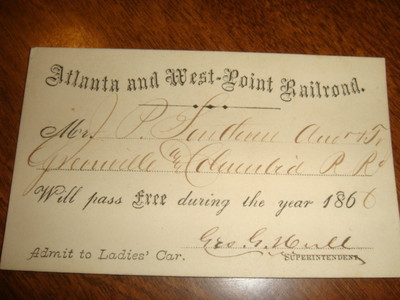 Atlanta and West-Point Railroad.
Mr. P.
Greenville & Columbia R Rd
Will pass Free during the year 1866
Geo. G. Hull
Admit to Ladies' Car. SUPERINTENDENT.